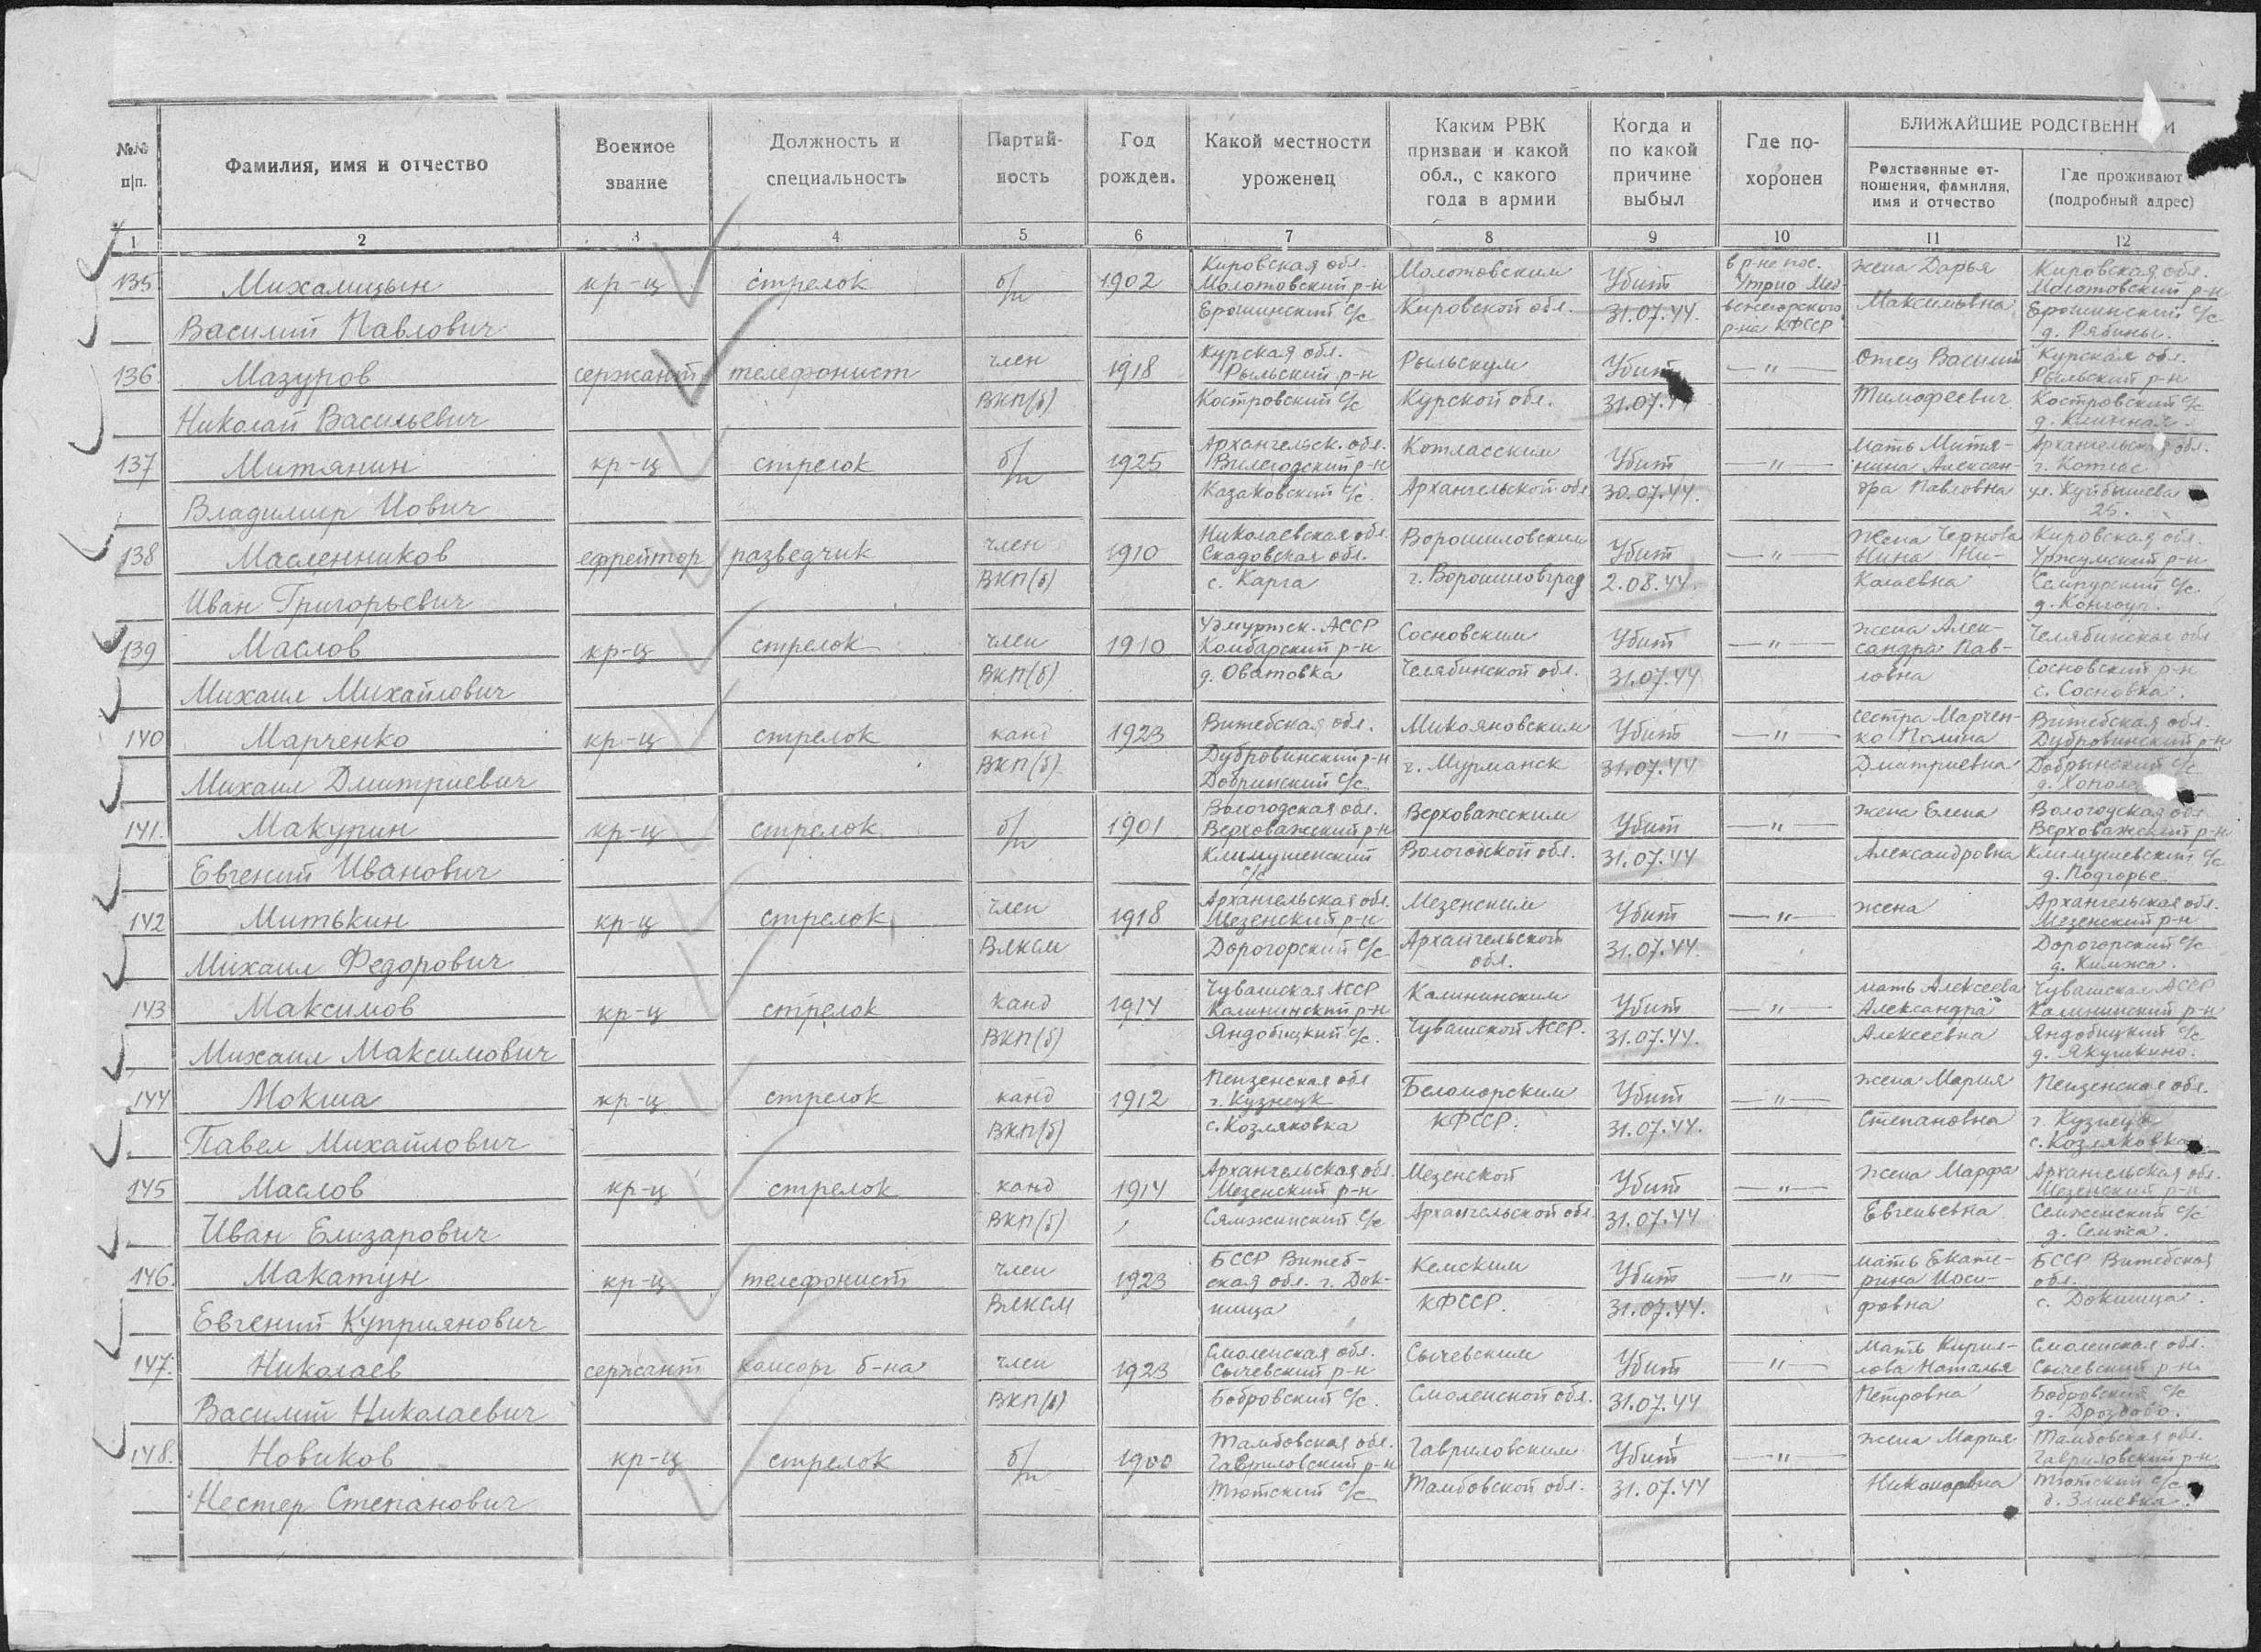 №№ п|п.
Фамилия, имя и отчество
Военное звание
Должность и специальность
Партийность
Год рожден.
Какой местности уроженец
Каким РВК призван и какой обл., с какого года в армии
Когда и по какой причине выбыл
Где похоронен
БЛИЖАЙШИЕ РОДСТВЕНН И
Родственные отношения, фамилия, имя и отчество
Где проживают (подробный адрес)
1 2 3 4 5 6 7 8 9 10 11 12
135 Михамицын кр-ц стрелок б/п 1902 Кировская обл. Молотовский р-н Молотовским Убит в р-не пос. жена Дарья Кировская обл. Молотовский р-н
Василий Павлович Ерошинский с/с Кировской обл. 31.07.44. р-на КФССР Максимовна Ерошинский с/с д. Рябины.
136. Мазуров сержант телефонист член 1918 Курская обл. Рыльский р-н Рыльским Убит —"— Отец Василий Курская обл. Рыльский р-н
Николай Васильевич ВКП(б) Костровский с/с Курской обл. 31.07. Тимофеевич Костровский с/с
137 Митянин кр-ц стрелок б/п 1925 Архангельск. обл. Вилегодский р-н Котласским Убит —"— мать Митянина Алексан- Архангельская обл. г. Котлас
Владимир Иович Казаковский с/с Архангельской обл 30.07.44. дра Павловна ул. Куйбышева 25.
138 Масленников ефрейтор разведчик член 1910 Николаевская обл. Скадовская обл. Ворошиловским Убит —"— Жена Чернова Нина Ни- Кировская обл. Уржумский р-н
Иван Григорьевич ВКП(б) с. Карга г. Ворошиловград 2.08.44. колаевна с/с
139 Маслов кр-ц стрелок член 1910 Удмуртск. АССР Камбарский р-н Сосновским Убит —"— жена Александра Пав- Челябинская обл
Михаил Михайлович ВКП(б) д. Оватовка Челябинской обл. 31.07.44 ловна Сосновский р-н с. Сосновка.
140 Марченко кр-ц стрелок канд 1923 Витебская обл. Микояновским Убит —"— сестра Марченко Полина Витебская обл. Дубровинский р-н
Михаил Дмитриевич ВКП(б) Дубровинский р-н Добринский с/с г. Мурманск 31.07.44 Дмитриевна Добрынский с/с
141. Макурин кр-ц стрелок б/п 1901 Вологодская обл. Верховажский р-н Верховажским Убит —"— жена Елена Вологодская обл Верховажский р-н
Евгений Иванович Климушенский с/с Вологодской обл. 31.07.44 Александровна Климушевский с/с д. Подгорье.
142 Митькин кр-ц стрелок член 1918 Архангельская обл. Мезенский р-н Мезенским Убит —"— жена Архангельская обл. Мезенский р-н
Михаил Федорович ВЛКСМ Дорогорский с/с Архангельской обл. 31.07.44. Дорогорский с/с д. Кимжа.
143 Максимов кр-ц стрелок канд 1914 Чувашская АССР Калининский р-н Калининским Убит —"— мать Алексеева Александра Чувашская АССР Калининский р-н
Михаил Максимович ВКП(б) Яндобицкий с/с. Чувашской АССР. 31.07.44. Алексеевна Яндобицкий с/с д. Якушкино.
144 Мокша кр-ц стрелок канд 1912 Пензенская обл г. Кузнецк Беломорским Убит —"— жена Мария Пензенская обл.
Павел Михайлович ВКП(б) с. Козляковка КФССР. 31.07.44. Степановна г. Кузнецк с. Козляковка
145 Маслов кр-ц стрелок канд 1914 Архангельская обл. Мезенский р-н Мезенской Убит —"— жена Марфа Архангельская обл. Мезенский р-н
Иван Елизарович ВКП(б) Сямжинский с/с Архангельской обл. 31.07.44 Евгеньевна Семженский с/с д. Семжа.
146. Макатун кр-ц телефонист член 1923 БССР Витебская обл. г. Док- Кемским Убит —"— мать Екатерина Иоси- БССР Витебская обл.
Евгений Куприянович ВЛКСМ шица КФССР. 31.07.44. фовна с. Докшица.
147. Николаев сержант комсорг б-на член 1923 Смоленская обл. Сычевский р-н Сычевским Убит —"— Мать Кирилова Наталья Смоленская обл. Сычевский р-н
Василий Николаевич ВКП(б) Бобровский с/с. Смоленской обл. 31.07.44 Петровна Бобровский с/с д. Дроздово.
148. Новиков кр-ц стрелок б/п 1900 Тамбовская обл. Гавриловский р-н Гавриловским Убит —"— жена Мария Тамбовская обл. Гавриловский р-н
Нестер Степанович Тютский с/с Тамбовской обл. 31.07.44 Никоноровна Тютский с/с